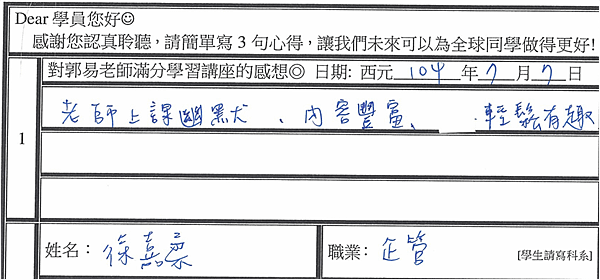 Dear 學員您好☺
感謝您認真聆聽，請簡單寫 3 句心得，讓我們未來可以為全球同學做得更好！
對郭易老師滿分學習講座的感想◎ 日期: 西元 104 年 7 月 7 日
1
老師上課幽默、內容豐富、輕鬆有趣
姓名： 徐嘉柔 職業： 企管 [學生請寫科系]